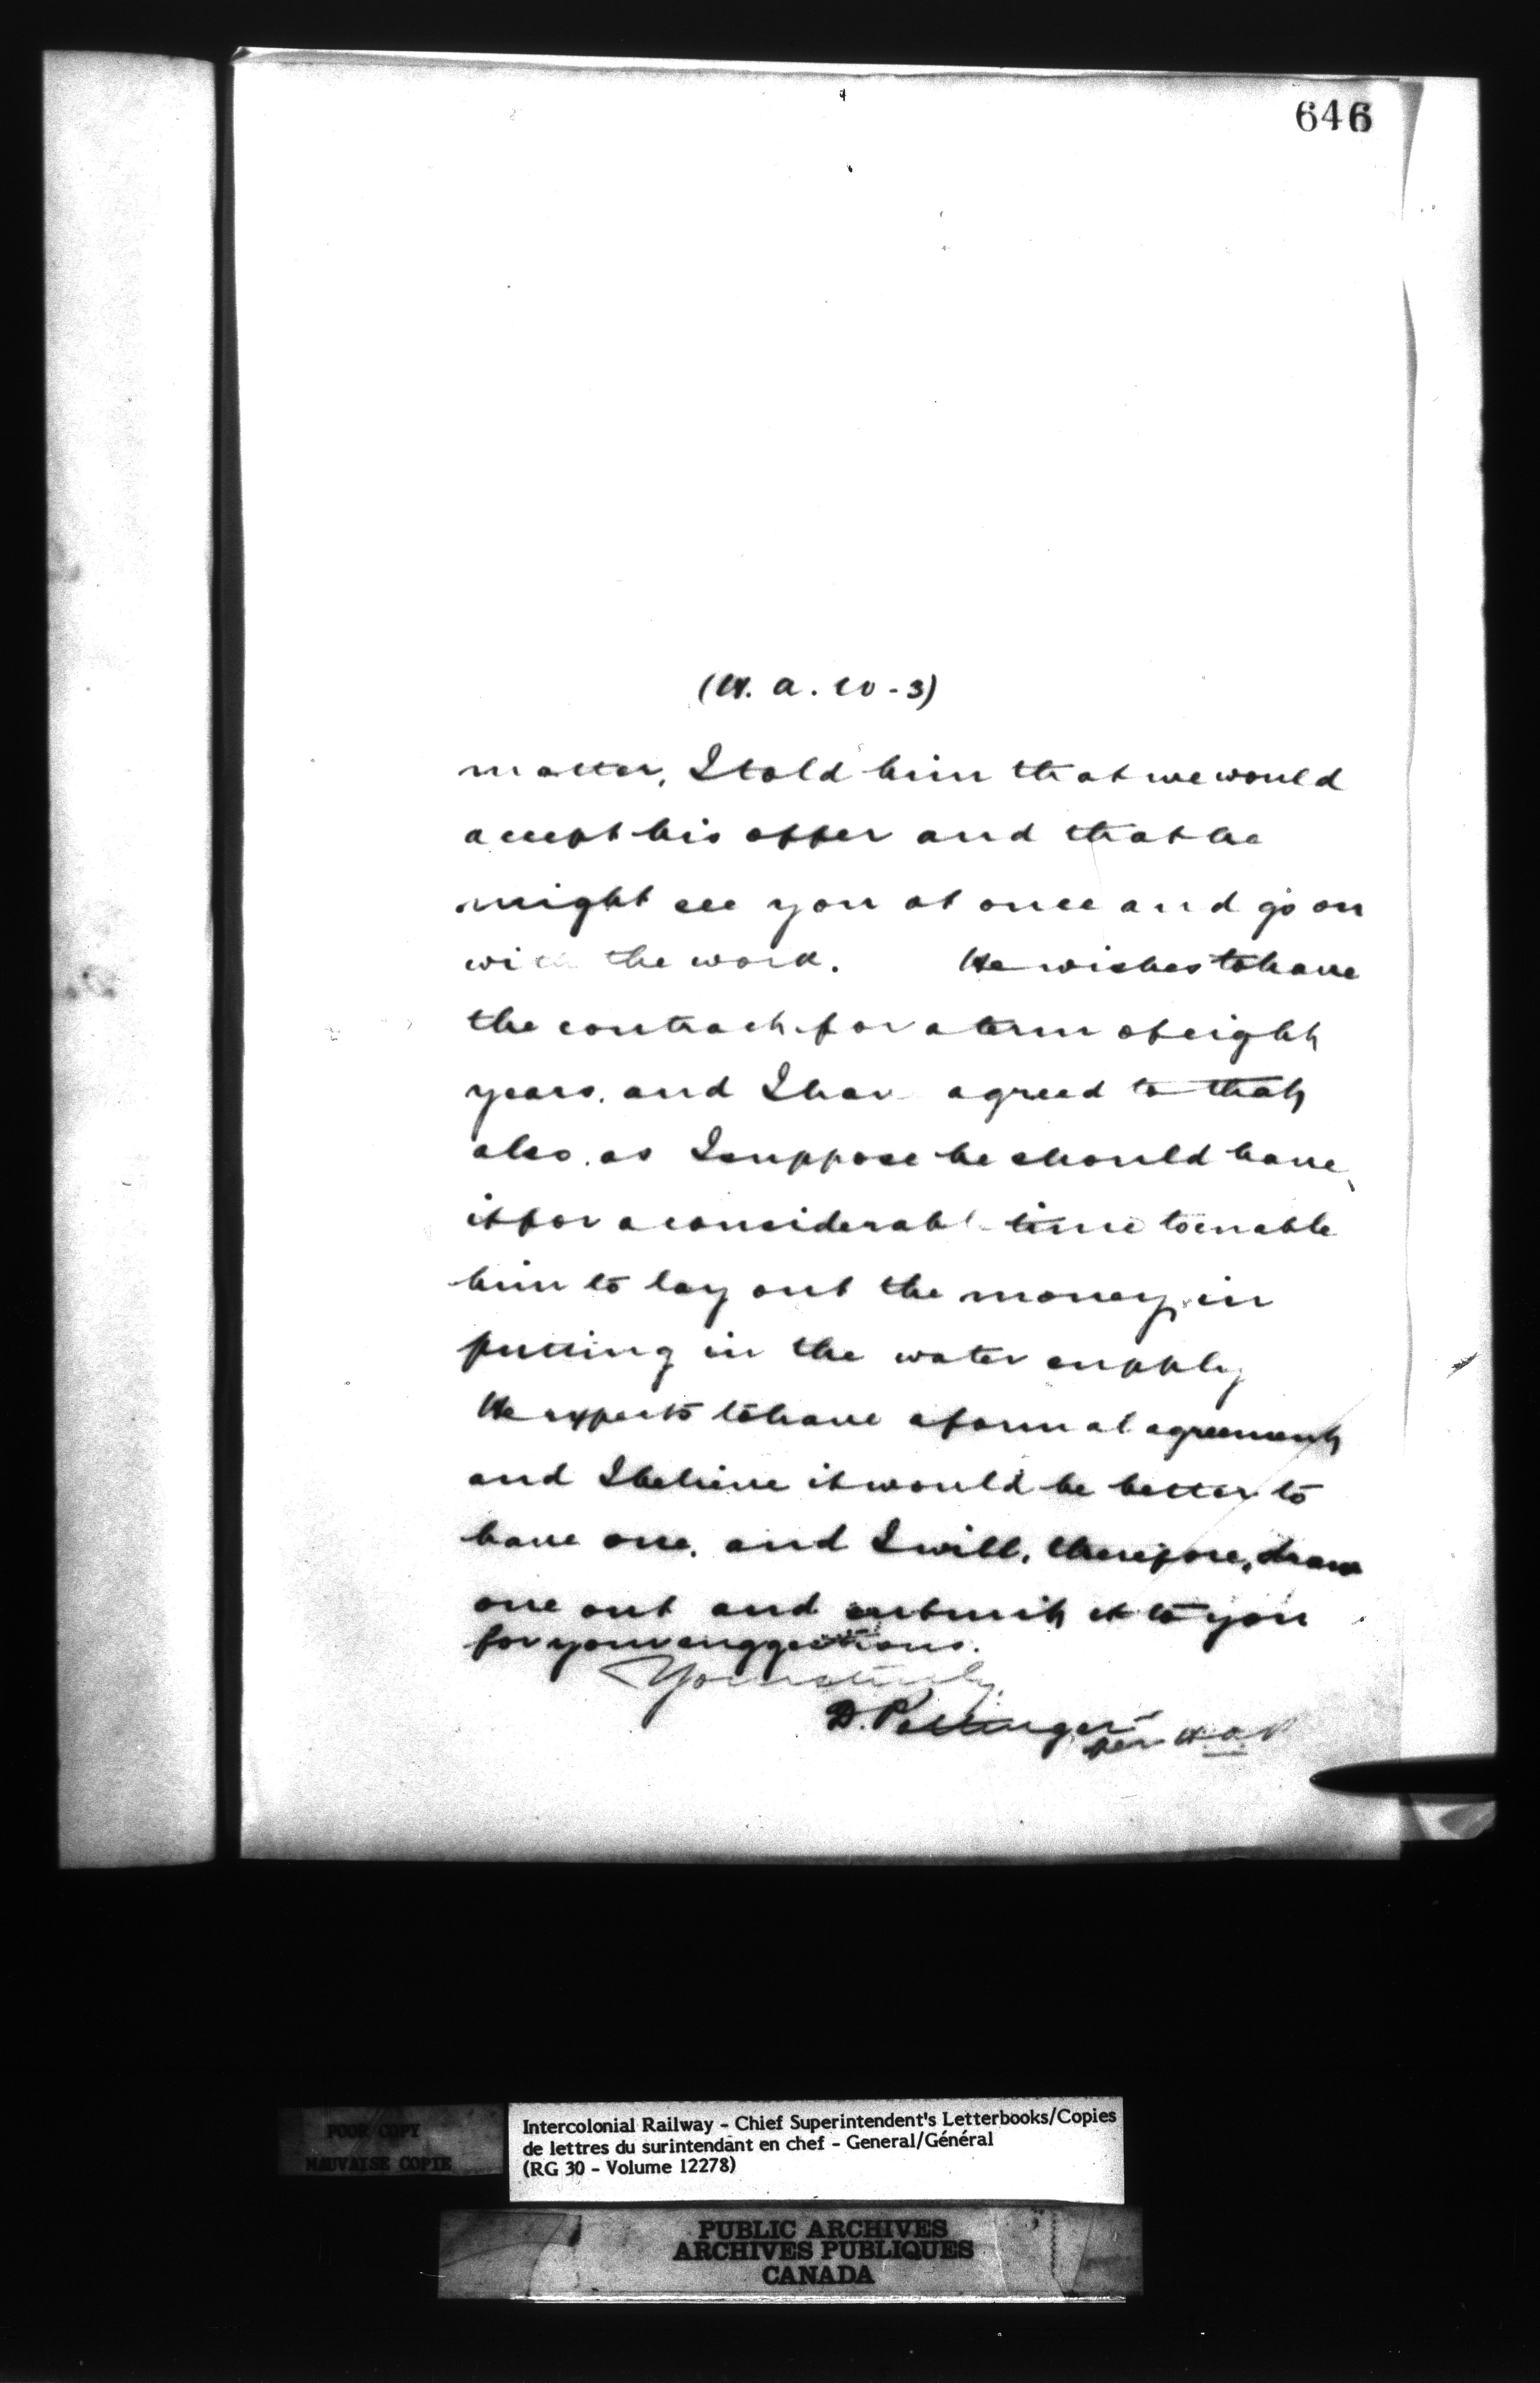 646
(H. A. W - 3)
matter, I told him that we would
accept his offer and that he
might see you at once and go on
with the work. He wishes to have
the contract for a term of eight
years, and I hav agreed to that
also, as I suppose he should have
it for a considerabl time to enable
him to lay out the money in
putting in the water supply
He expects to have a formal agreement
and I believe it would be better to
have one, and I will, therefore, draw
one out and submit it to you
for your suggestions.
Yours truly,
D. Pottinger
per
POOR COPY
MAUVAISE COPIE
Intercolonial Railway - Chief Superintendent's Letterbooks/Copies
de lettres du surintendant en chef - General/Général
(RG 30 - Volume 12278)
PUBLIC ARCHIVES
ARCHIVES PUBLIQUES
CANADA